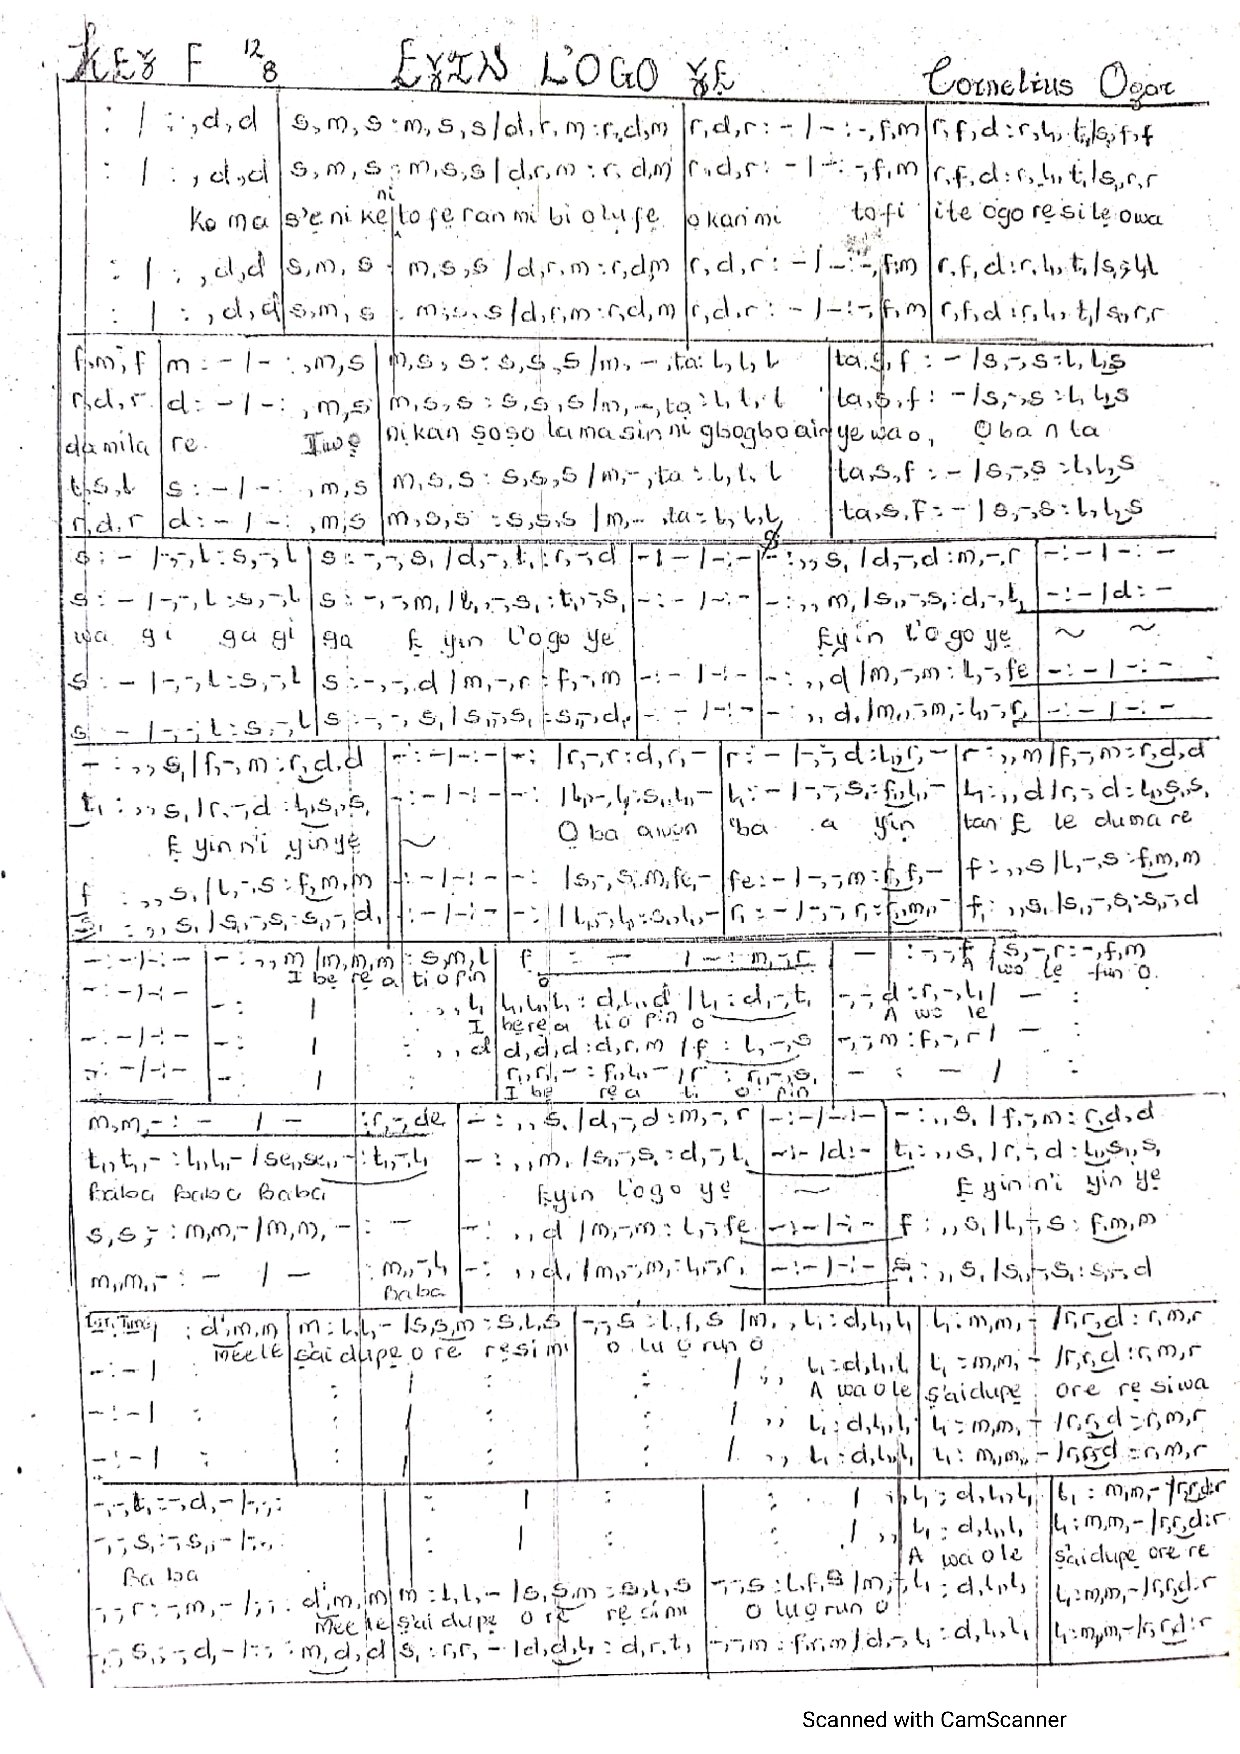 KEY F 12/8 EYIN L'OGO YE Cornelius Ogar
: / : ,d,d | s,m,s : m,s,s / d,r,m : r,d,m | r,d,r : - / - : -,f,m | r,f,d : r,l,,t, / s,,f,f
: / : ,d,d | s,m,s : m,s,s / d,r,m : r,d,m | r,d,r : - / - : -,f,m | r,f,d : r,l,,t, / s,,r,r
ni
Ko ma s'e ni ke to fe ran mi bi olufe o kan mi to fi ite ogo re si le o wa
: / : ,d,d | s,m,s : m,s,s / d,r,m : r,d,m | r,d,r : - / - : -,f,m
: / : ,d,d | s,m,s : m,s,s / d,r,m : r,d,m | r,d,r : - / - : -,f,m | r,f,d : r,l,,t, / s,,r,r
f,m,f | m : - / - : ,m,s | m,s,s : s,s,s / m,-,ta : l,l,l | ta,s,f : - / s,-,s : l,l,s
r,d,r | d : - / - : ,m,s | m,s,s : s,s,s / m,-,ta : l,l,l | ta,s,f : - / s,-,s : l,l,s
da mi la re. Iwọ nikan ṣoṣo la ma sin ni gbogbo aiye wa o, Ọba n la
t,,s,,l, | s : - / - : ,m,s | m,s,s : s,s,s / m,-,ta : l,l,l | ta,s,f : - / s,-,s : l,l,s
r,d,r | d : - / - : ,m,s | m,s,s : s,s,s / m,-,ta : l,l,l | ta,s,f : - / s,-,s : l,l,s
s : - / -,-,l : s,-,l | s : -,-,s, / d,-,t, : r,-,d | - : - / - : - | - : ,,s, / d,-,d : m,-,r | - : - / - : -
s : - / -,-,l : s,-,l | s : -,-,m, / l,,-,s, : t,,-,s, | - : - / - : - | - : ,,m, / s,,-,s, : d,-,l, | - : - / d : -
wa gi ga gi ga Ẹ yin l'ogo yẹ Ẹyin l'ogo yẹ ~ ~
s : - / -,-,l : s,-,l | s : -,-,d / m,-,r : f,-,m | - : - / - : - | - : ,,d / m,-,m : l,-,fe | - : - / - : -
s : - / -,-,l : s,-,l | s : -,-,s, / s,,-,s, : s,,-,d, | - : - / - : - | - : ,,d, / m,,-,m, : l,,-,r, | - : - / - : -
- : ,,s, / f,-,m : r,d,d | - : - / - : - | - : / r,-,r : d,r,- | r : - / -,-,d : l,,r,- | r : ,,m / f,-,m : r,d,d
t, : ,,s, / r,-,d : l,,s,,s, | - : - / - : - | - : / l,,-,l, : s,,l,,- | l, : - / -,-,s, : f,,l,,- | l, : ,,d / r,-,d : l,,s,,s,
Ẹ yin n'i yin yẹ ~ Ọba awọn ba a yin tan Ẹ le dumare
f : ,,s, / l,-,s : f,m,m | - : - / - : - | - : / s,-,s : m,fe,- | fe : - / -,-,m : f,f,- | f : ,,s / l,-,s : f,m,m
s, : ,,s, / s,,-,s, : s,,-,d, | - : - / - : - | - : / l,,-,l, : s,,l,,- | r, : - / -,-,r, : r,,m,,- | f, : ,,s, / s,,-,s, : s,,-,d
- : - / - : - | - : ,,m / m,m,m : s,m,l | f : - / - : m,-,r | - : -,-,f / s,-,r : -,f,m
I be re a ti o pin o A wo le fun O.
- : - / - : - | - : / : ,,l, | l,,l,,l, : d,l,,d / l, : d,-,t, | -,-,d : r,-,l, / - :
I bere a ti o pin o A wo le
- : - / - : - | - : / : ,,d | d,d,d : d,r,m / f : l,-,s | -,-,m : f,-,r / - :
- : - / - : - | - : / : | r,,r,,- : f,,l,,- / r : r,,-,s, | - : - / :
I be re a ti o pin
m,m,- : - / - : r,-,de | - : ,,s, / d,-,d : m,-,r | - : - / - : - | - : ,,s, / f,-,m : r,d,d
t,,t,,- : l,,l,,- / se,,se,,- : t,,-,l, | - : ,,m, / s,,-,s, : d,-,l, | - : - / d : - | t, : ,,s, / r,-,d : l,,s,,s,
Baba Baba Baba Ẹyin l'ogo yẹ ~ Ẹ yin n'i yin yẹ
s,s,- : m,m,- / m,m,- : - | - : ,,d / m,-,m : l,-,fe | - : - / - : - | f : ,,s, / l,-,s : f,m,m
m,,m,,- : - / - : m,,-,l, | - : ,,d, / m,,-,m, : l,,-,r, | - : - / - : - | s, : ,,s, / s,,-,s, : s,,-,d
Baba
1st Time / : d,m,m | m : l,l,- / s,s,m : s,l,s | -,-,s : l,f,s / m,,l, : d,l,,l, | l, : m,m,- / r,r,d : r,m,r
Mee le s'ai dupe o re re si mi o lu ọ run o
- : - / : | : / : | : / ,, l, : d,l,,l, | l, : m,m,- / r,r,d : r,m,r
A wa o le s'ai dupe ore re si wa
- : - / : | : / : | : / ,, l, : d,l,,l, | l, : m,m,- / r,r,d : r,m,r
- : - / : | : / : | : / ,, l, : d,l,,l, | l, : m,m,- / r,r,d : r,m,r
-,-,t, : -,d,- / -,-,: | : / : | : / ,,l, : d,l,,l, | l, : m,m,- / r,r,d:r
-,-,s, : -,s,,- / -,-, | : / : | : / ,, l, : d,l,,l, | l, : m,m,- / r,r,d:r
Ba ba A wa o le s'ai dupe ore re
-,-,r : -,m,- / -,-, : d,m,m | m : l,l,- / s,s,m : s,l,s | -,-,s : l,f,s / m,-,l, : d,l,,l, | l, : m,m,- / r,r,d:r
Mee le s'ai dupe o re re si mi o lu ọ run o
-,-,s, : -,d,- / -,-, : m,d,d | s, : r,r,- / d,d,l, : d,r,t, | -,-,m : f,r,m / d,-,l, : d,l,,l, | l, : m,m,- / r,r,d:r
Scanned with CamScanner